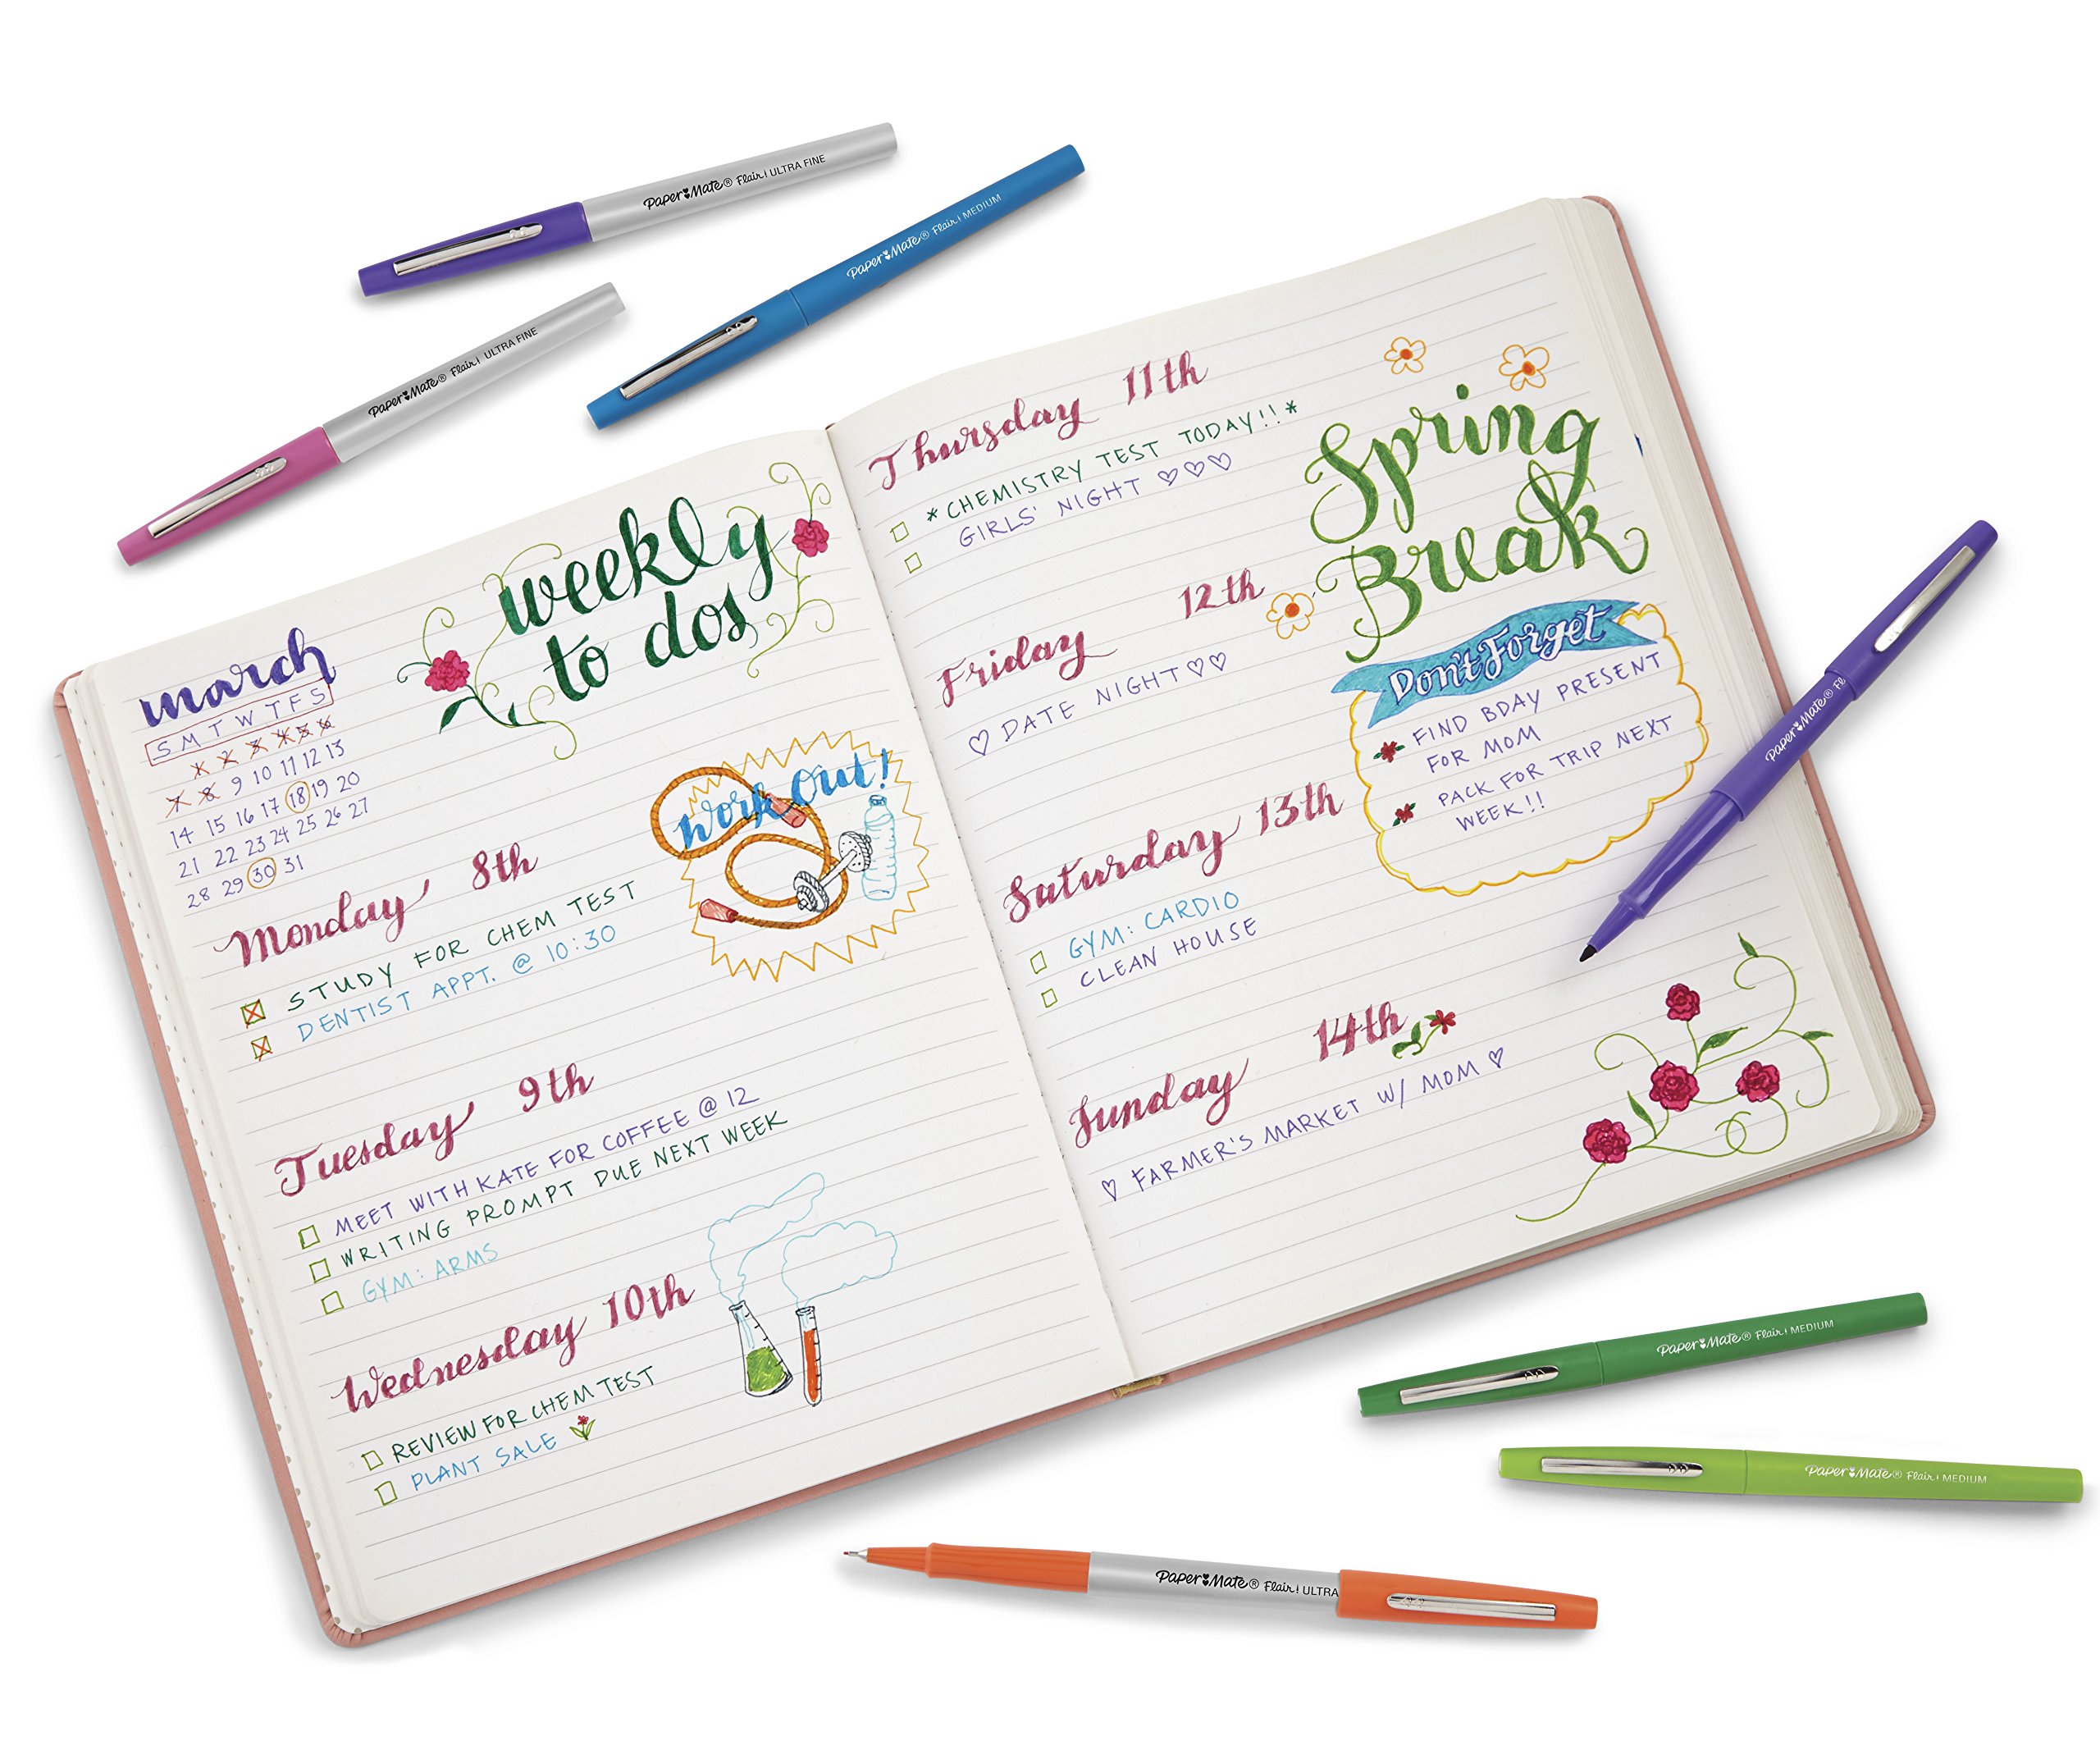 Paper Mate® Flair! ULTRA FINE
Paper Mate® Flair! MEDIUM
Paper Mate® Flair! ULTRA FINE
weekly
to dos
march
S M T W T F S
1 2 3 4 5 6
7 8 9 10 11 12 13
14 15 16 17 18 19 20
21 22 23 24 25 26 27
28 29 30 31
Work Out!
Monday 8th
STUDY FOR CHEM TEST
DENTIST APPT. @ 10:30
Tuesday 9th
MEET WITH KATE FOR COFFEE @ 12
WRITING PROMPT DUE NEXT WEEK
GYM: ARMS
Wednesday 10th
REVIEW FOR CHEM TEST
PLANT SALE
Thursday 11th
*CHEMISTRY TEST TODAY!!*
GIRLS' NIGHT ♡♡♡
Friday 12th
♡ DATE NIGHT ♡♡
Saturday 13th
GYM: CARDIO
CLEAN HOUSE
Sunday 14th
♡ FARMER'S MARKET W/ MOM ♡
Spring
Break
Don't Forget
FIND BDAY PRESENT
FOR MOM
PACK FOR TRIP NEXT
WEEK!!
Paper Mate® Fl
Paper Mate® Flair! MEDIUM
Paper Mate® Flair! MEDIUM
Paper Mate® Flair! ULTRA